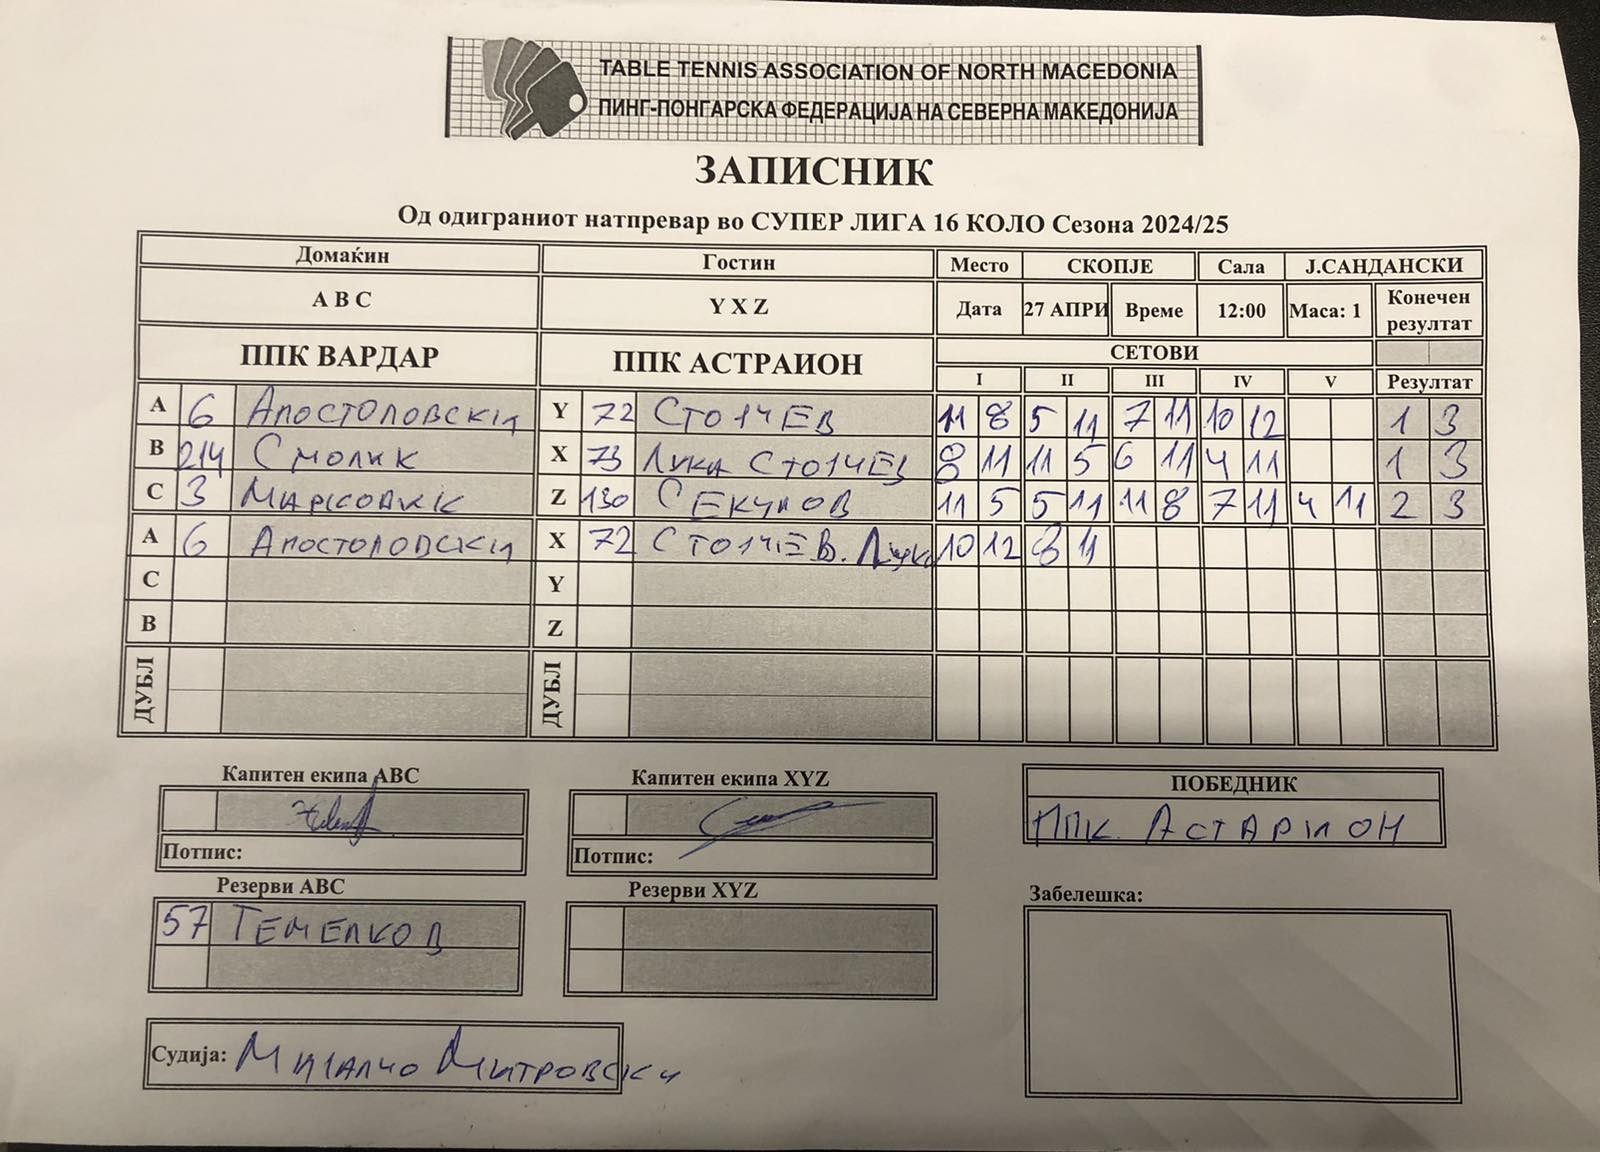 TABLE TENNIS ASSOCIATION OF NORTH MACEDONIA
ПИНГ-ПОНГАРСКА ФЕДЕРАЦИЈА НА СЕВЕРНА МАКЕДОНИЈА
ЗАПИСНИК
Од одиграниот натпревар во СУПЕР ЛИГА 16 КОЛО Сезона 2024/25
Домаќин Гостин Место СКОПЈЕ Сала Ј.САНДАНСКИ
A B C Y X Z Дата 27 АПРИ Време 12:00 Маса: 1 Конечен резултат
ППК ВАРДАР ППК АСТРАИОН СЕТОВИ
I II III IV V Резултат
A 6 Апостоловски Y 72 Стојчев 11 8 5 11 7 11 10 12 1 3
B 214 Смолик X 73 Лука Стојчев 8 11 11 5 6 11 4 11 1 3
C 3 Z 130 Секулов 11 5 5 11 11 8 7 11 4 11 2 3
A 6 Апостоловски X 72 Стојчев. Лука 10 12 8 11
C Y
B Z
ДУБЛ ДУБЛ
Капитен екипа ABC Капитен екипа XYZ ПОБЕДНИК
ППК. Астарион
Потпис: Потпис:
Резерви ABC Резерви XYZ Забелешка:
57 Темелков
Судија: Михалчо Митровски